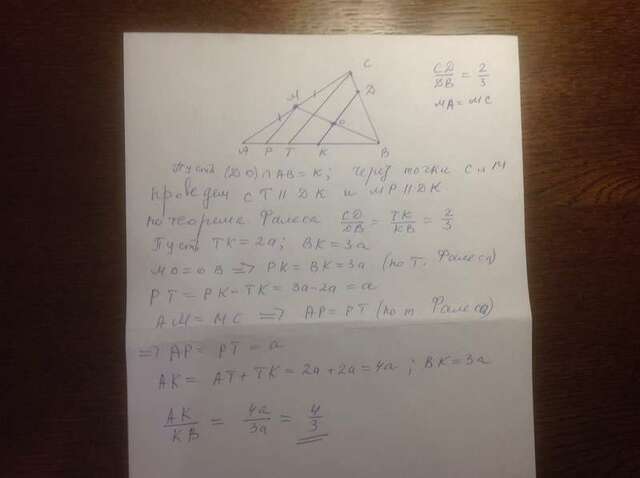 C
D
M
O
A P T K B
CD/DB = 2/3
MA = MC
Пусть (DO)∩AB = K; через точки C и M
проведем CT || DK и MP || DK
по теореме Фалеса CD/DB = TK/KB = 2/3
Пусть TK = 2a; BK = 3a
MO = OB => PK = BK = 3a (по т. Фалеса)
PT = PK - TK = 3a - 2a = a
AM = MC => AP = PT (по т Фалеса)
=> AP = PT = a
AK = AT + TK = 2a + 2a = 4a; BK = 3a
AK/KB = 4a/3a = 4/3